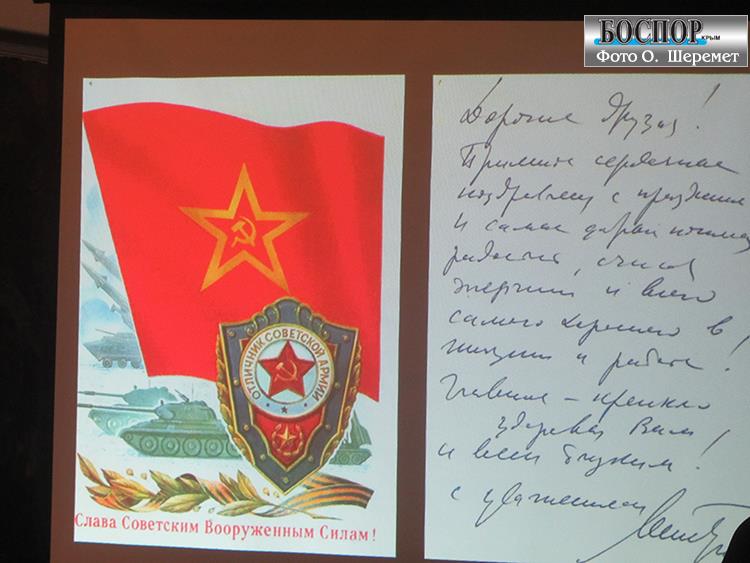 БОСПОР КРЫМ
Фото О. Шеремет
ОТЛИЧНИК СОВЕТСКОЙ АРМИИ
Слава Советским Вооруженным Силам!
Дорогие друзья!
Примите сердечные
поздравления с праздником
и самые добрые пожелания
радости, счастья
энергии и всего
самого хорошего в
жизни и работе!
Главное – крепкого
здоровья Вам
и всем близким!
с уважением